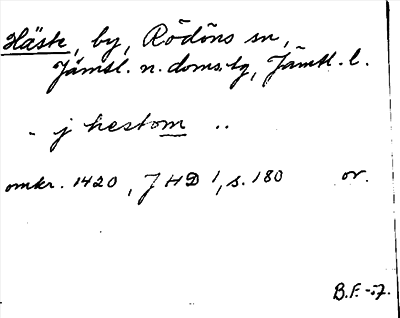 Häste, by, Rödöns sn,
Jämtl. n. doms.tg, Jämtl. l.
- j hestom ..
omkr. 1420, JHD 1, s. 180 or.
B.F.-7.